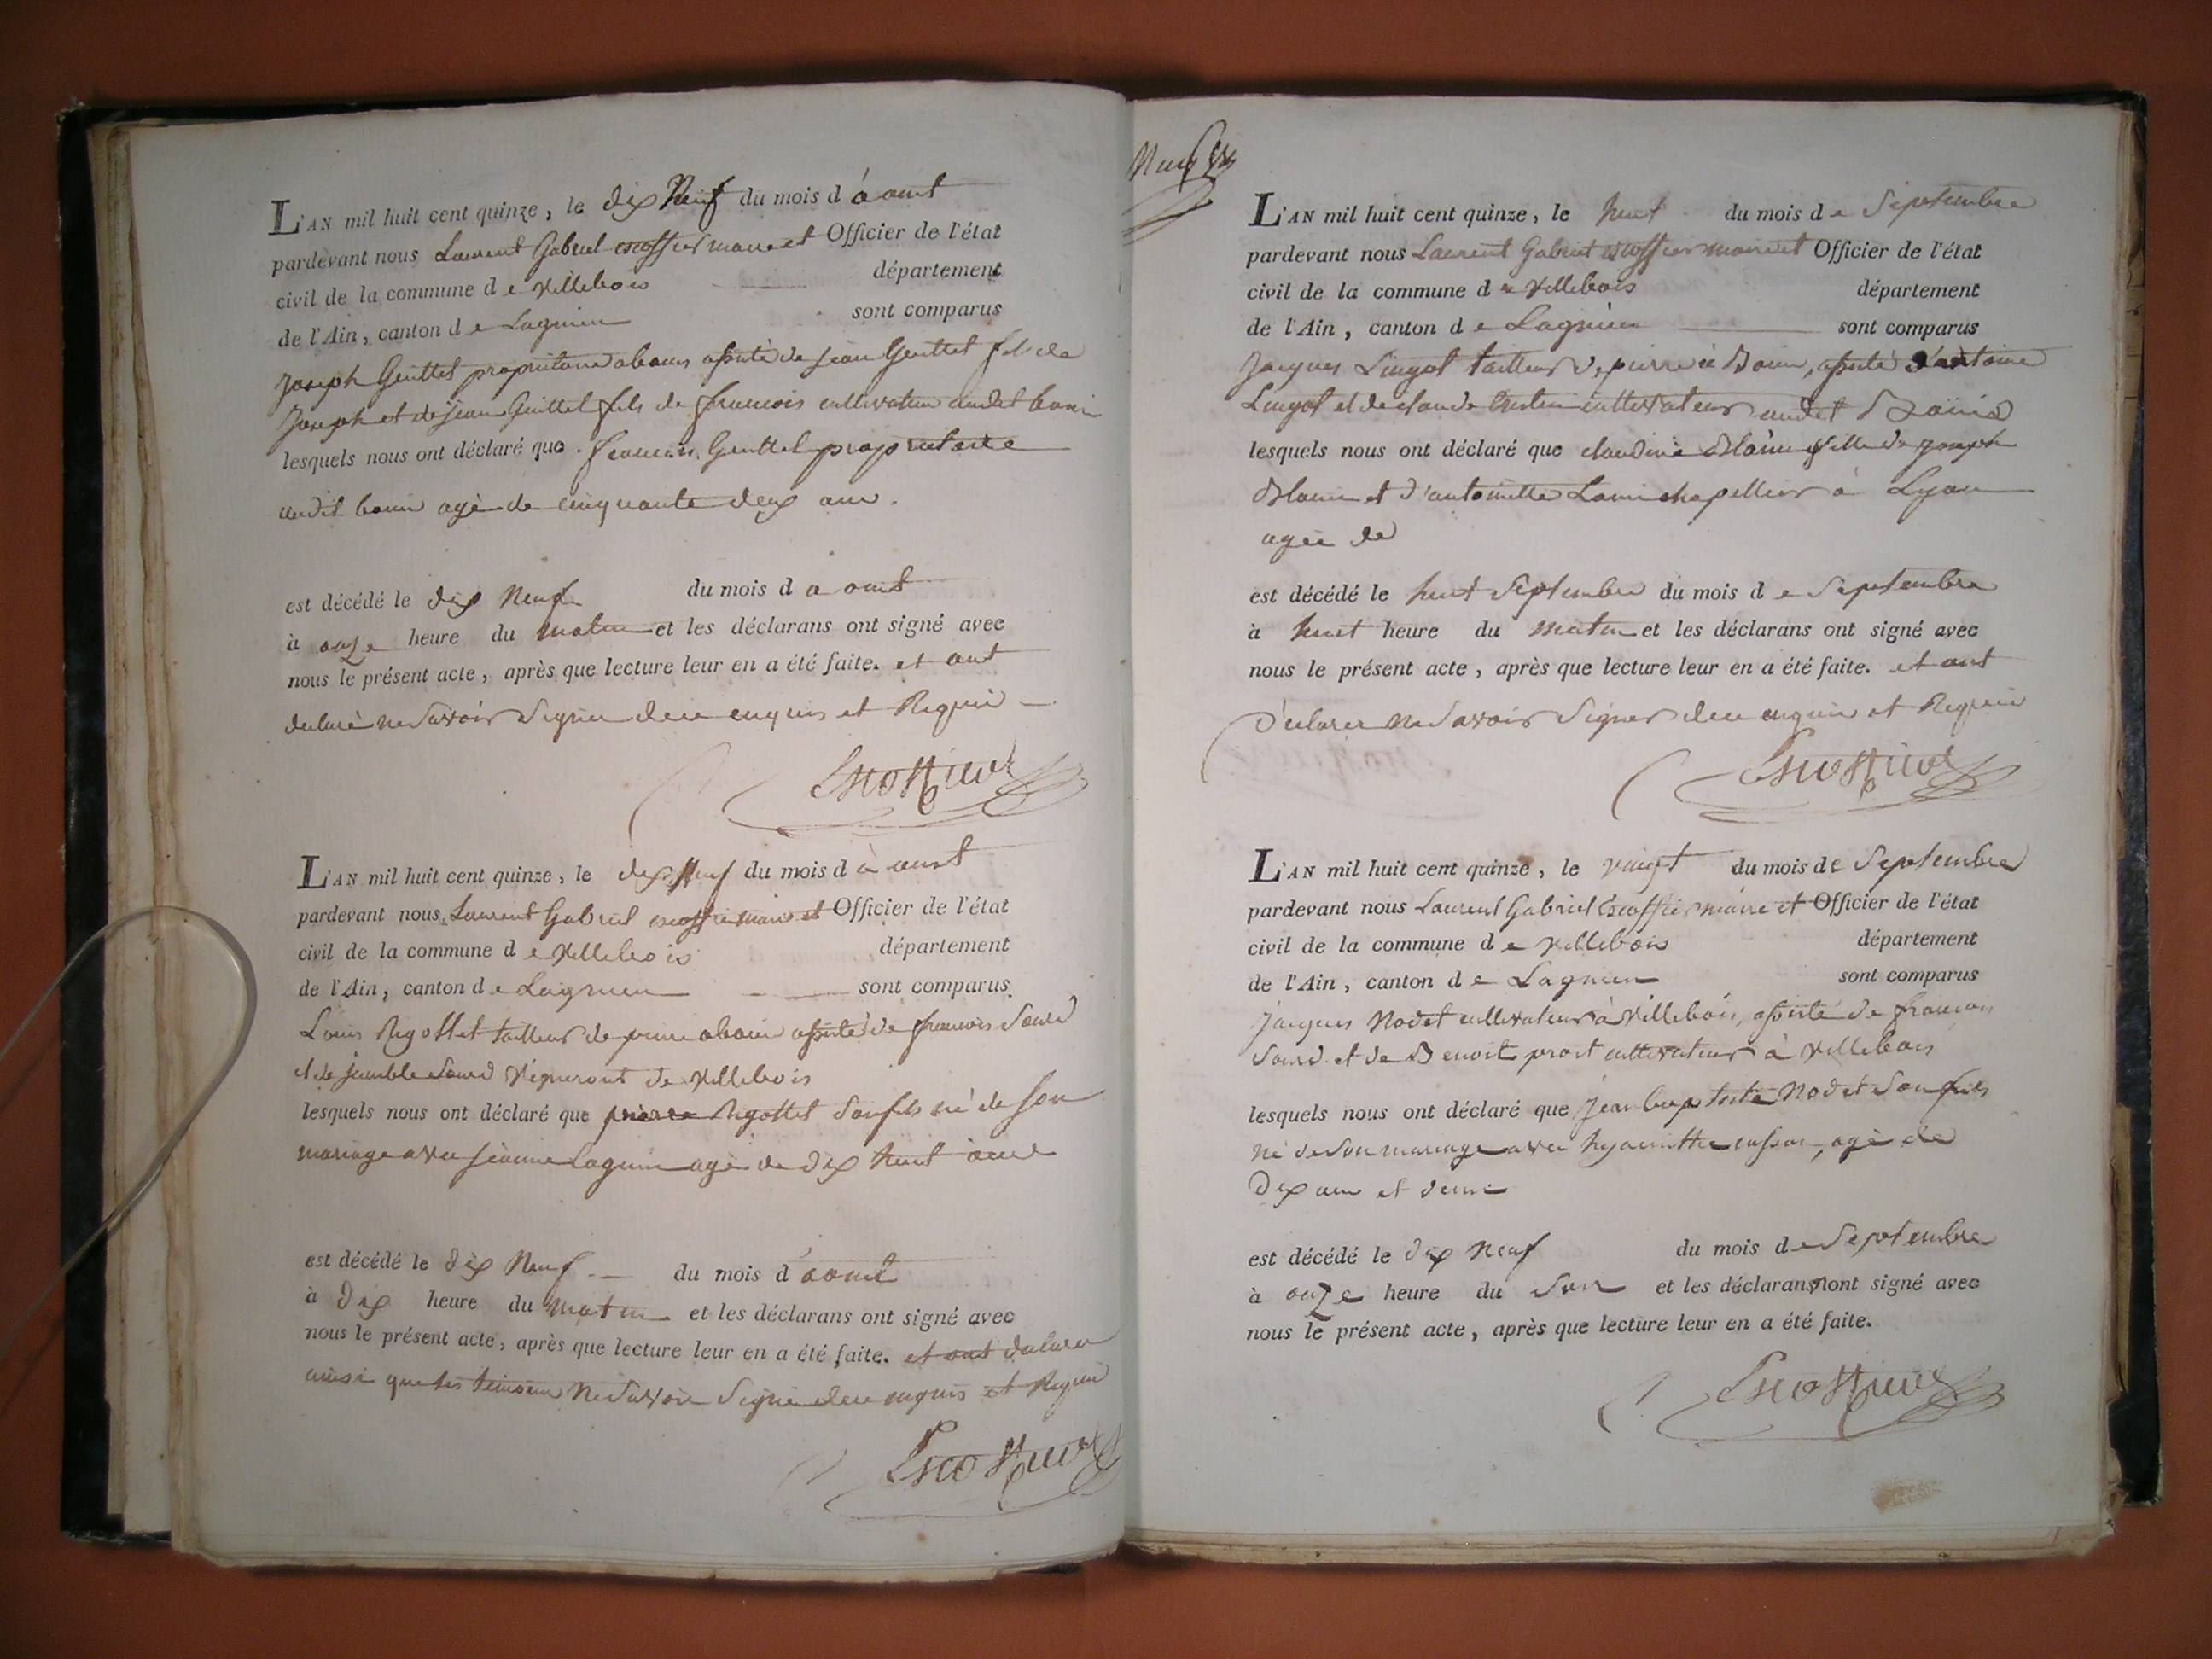 L'AN mil huit cent quinze, le dix Neuf du mois d'aout
pardevant nous Laurent Gabriel escoffier maire et Officier de l'état
civil de la commune de villebois département
de l'Ain, canton de Lagnieu sont comparus
Joseph Guittet propriétaire a bouis assisté de jean Guittet fils de
Joseph et de jean Guittet fils de francois cultivateur audit bouis
lesquels nous ont déclaré que francois Guittet propriétaire
audit bouis agé de cinquante deux ans
est décédé le dix Neuf du mois d aout
à onze heure du matin et les déclarans ont signé avec
nous le présent acte, après que lecture leur en a été faite. et ont
declaré ne savoir signer de ce enquis et Requis
Escoffier
L'AN mil huit cent quinze, le dix Neuf du mois d'aout
pardevant nous Laurent Gabriel escoffier maire et Officier de l'état
civil de la commune de villebois département
de l'Ain, canton de Lagnieu sont comparus
Louis Rigottet tailleur de pierre a bouis assisté de francois Sourd
et de Sourd vigneront de villebois
lesquels nous ont déclaré que pierre Rigottet son fils né de son
mariage avec jeanne agé de dix huit
est décédé le dix Neuf du mois d'aout
à dix heure du matin et les déclarans ont signé avec
nous le présent acte, après que lecture leur en a été faite. et ont declarer
ainsi que les temoins Ne Savoir Signé de ce enquis et Requis
Escoffier
L'AN mil huit cent quinze, le huit du mois de Septembre
pardevant nous Laurent Gabriel escoffier maire et Officier de l'état
civil de la commune de villebois département
de l'Ain, canton de Lagnieu sont comparus
Jacques Lingot tailleur de pierre à Bouis, assisté d'antoine
Lingot et de claude cultivateur audit Bouis
lesquels nous ont déclaré que claudine fille de joseph
et d'antoinette chapellier à Lyon
agée de
est décédé le huit Septembre du mois de Septembre
à huit heure du matin et les déclarans ont signé avec
nous le présent acte, après que lecture leur en a été faite. et ont
declarer ne Savoir Signer de ce enquis et Requis
Escoffier
L'AN mil huit cent quinze, le vingt du mois de Septembre
pardevant nous Laurent Gabriel Escoffier maire et Officier de l'état
civil de la commune de villebois département
de l'Ain, canton de Lagnieu sont comparus
Jacques Nodet cultivateur à villebois, assisté de francois
Sourd et de Benoit prost cultivateur à villebois
lesquels nous ont déclaré que jean baptiste Nodet son fils
né de son mariage avec hyacinthe, agé de
dix ans et demi
est décédé le dix Neuf du mois de Septembre
à onze heure du Soir et les déclarans n'ont signé avec
nous le présent acte, après que lecture leur en a été faite.
Escoffier